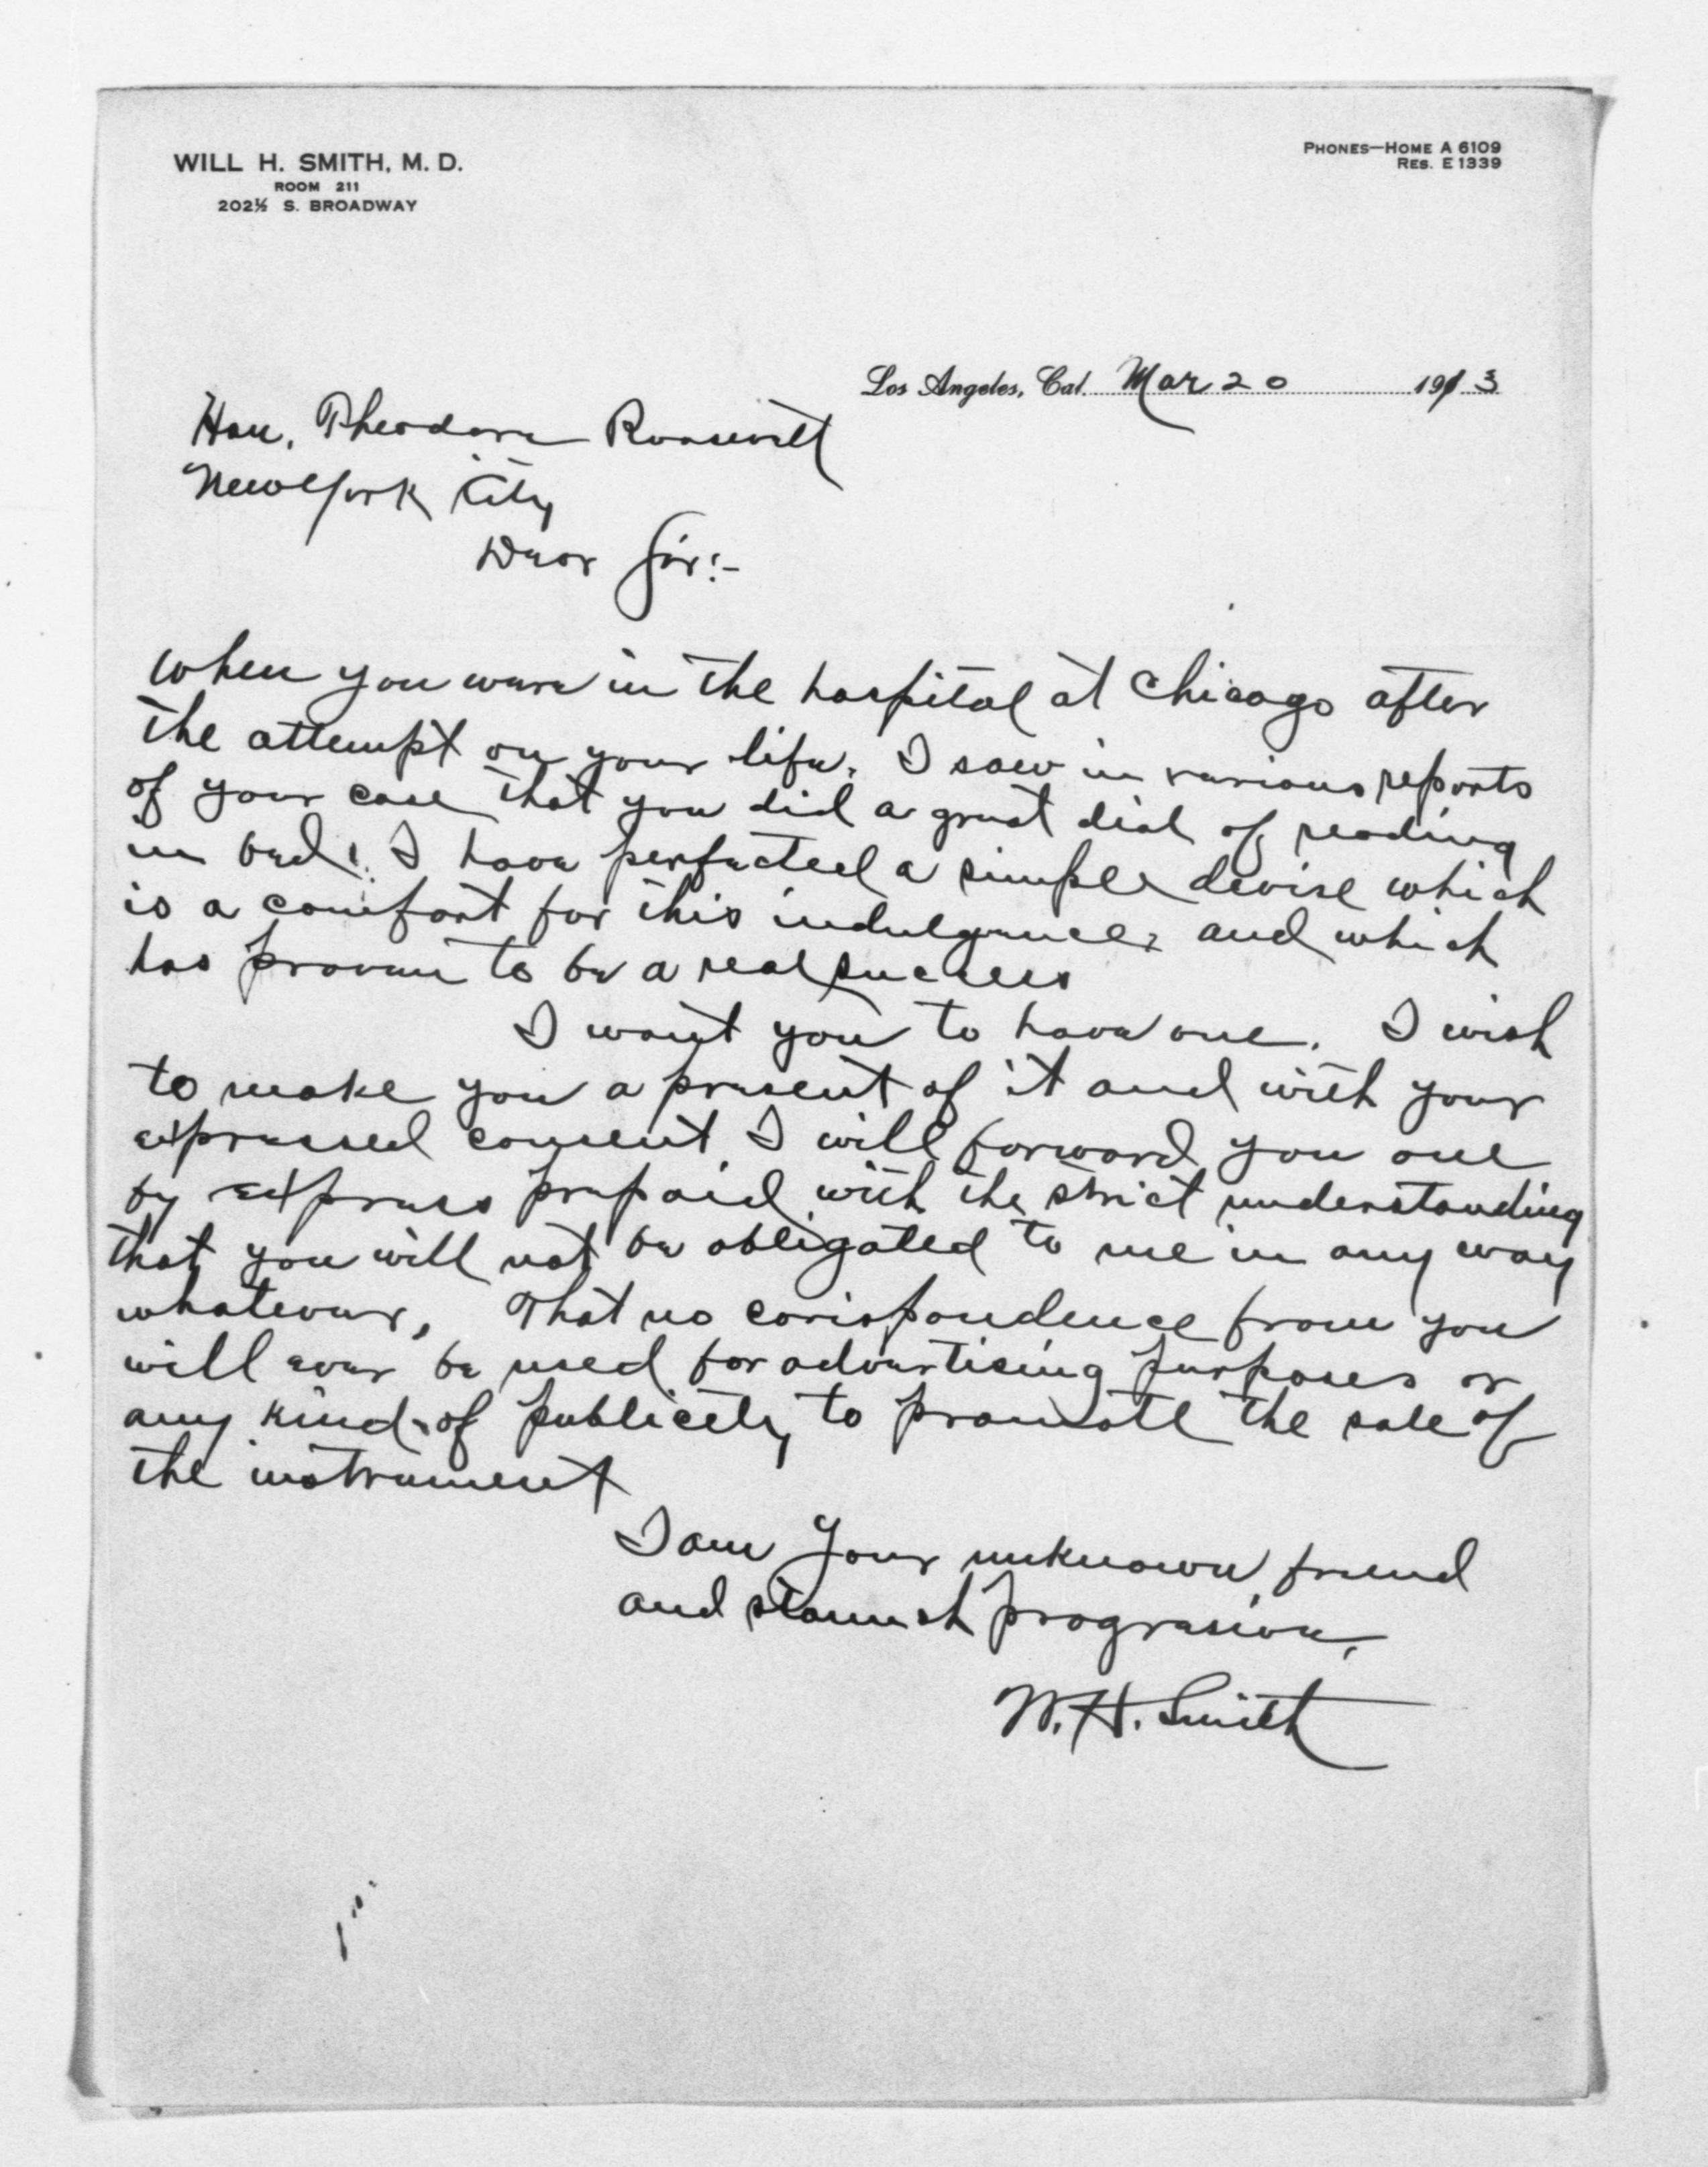 WILL H. SMITH, M. D.
ROOM 211
202½ S. BROADWAY
PHONES—HOME A 6109
RES. E 1339
Los Angeles, Cal. Mar 20 1913
Hon. Theodore Roosevelt
New York City
Dear Sir:-
When you were in the hospital at Chicago after
the attempt on your life, I saw in various reports
of your case that you did a great deal of reading
in bed. I have perfected a simple devise which
is a comfort for this indulgence, and which
has proven to be a real success
I want you to have one. I wish
to make you a present of it and with your
expressed consent I will forward you one
by express prepaid with the strict understanding
that you will not be obligated to me in any way
whatever, That no corispondence from you
will ever be used for advertising purposes or
any kind of publicity to promote the sale of
the instrument
I am Your unknown friend
and staunch progresive,
W. H. Smith